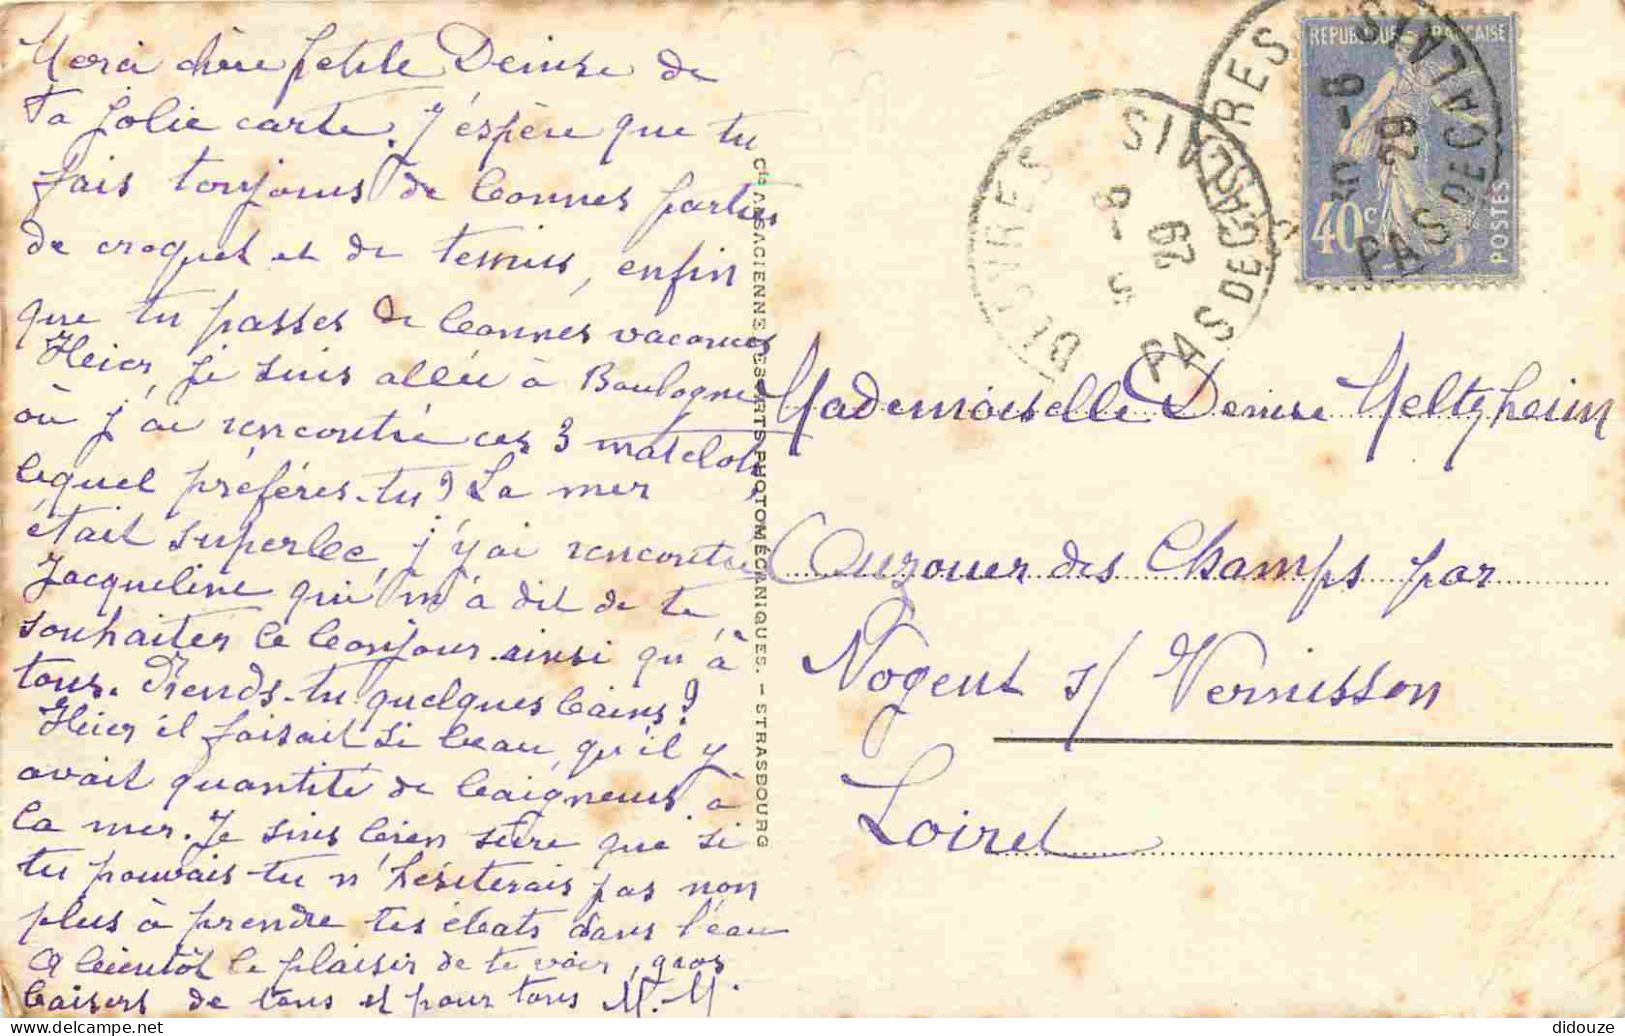 Merci chère petite Denise de
ta jolie carte. J'éspère que tu
fais toujours de bonnes parties
de croquet et de tennis, enfin
que tu passes de bonnes vacances
Hier, je suis allée à Boulogne
où j'ai rencontré ces 3 matelots,
lequel préféres-tu? La mer
était superbe, j'y ai rencontré
Jacqueline qui m'a dit de te
souhaiter le bonjour ainsi qu'à
tous. Prends-tu quelques bains?
Hier il faisait si beau, qu'il y
avait quantité de baigneurs à
la mer. Je suis bien sûre que si
tu pouvais tu n'hésiterais pas non
plus à prendre tes ébats dans l'eau
A bientôt le plaisir de te voir, gros
baisers de tous et pour tous M.M.
Cie ALSACIENNE DES ARTS PHOTOMÉCANIQUES. - STRASBOURG
RÉPUBLIQUE FRANÇAISE
40c
POSTES
DESVRES
PAS DE CALAIS
29
DESVRES
PAS DE CALAIS
29
Mademoiselle Denise Meltzheim
Ouzouer des Champs par
Nogent s/ Vernisson
Loiret
didouze